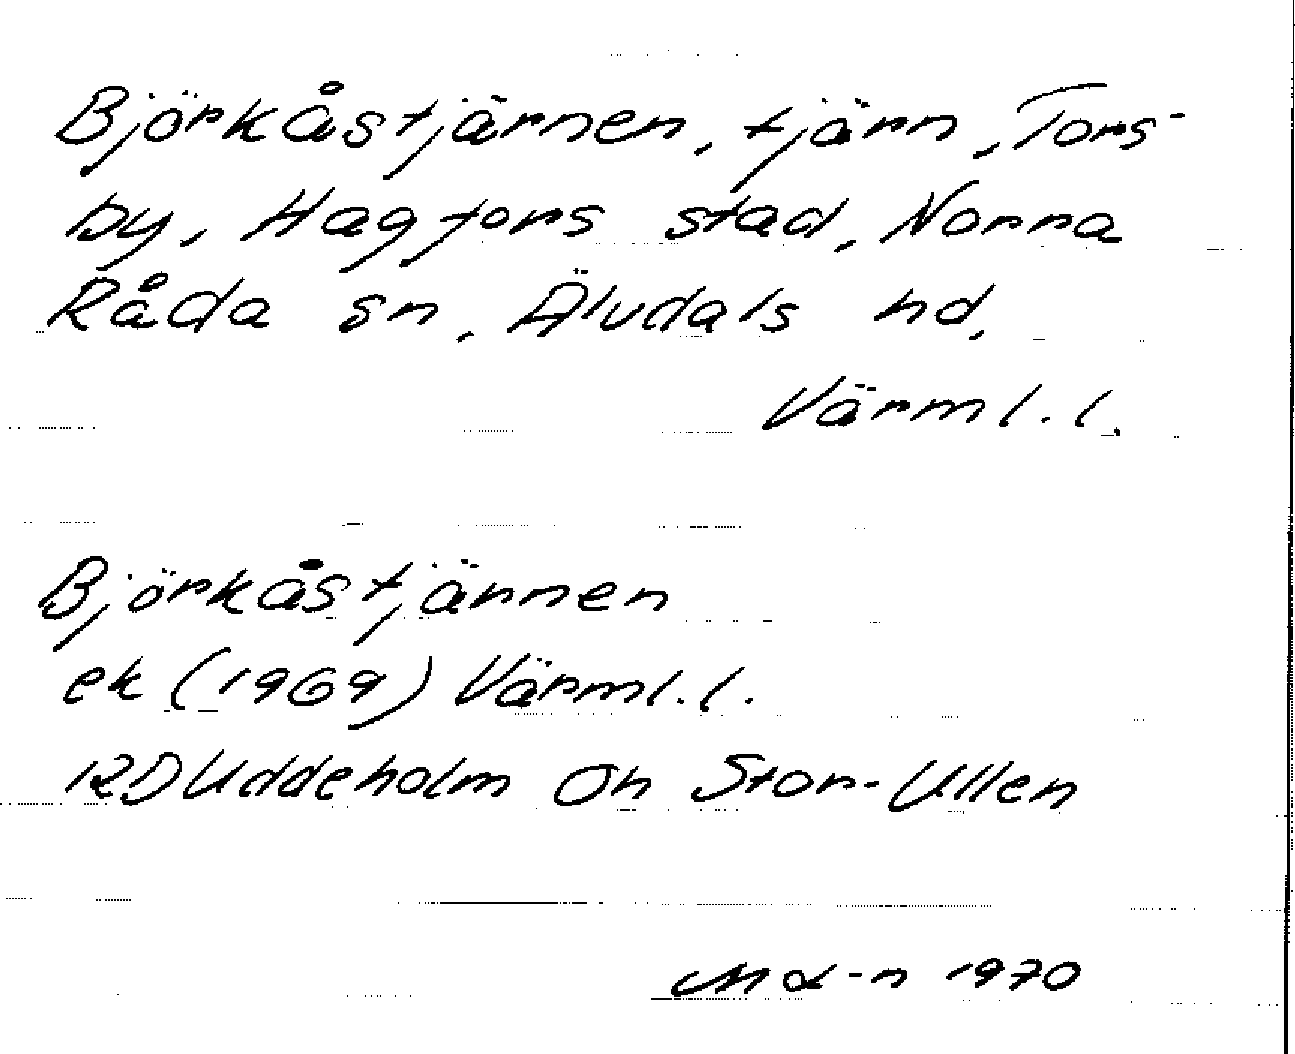 Björkåstjärnen, tjärn, Tors-
by, Hagfors stad, Norra
Råda sn, Älvdals hd,
Värml. l.
Björkåstjärnen
ek (1969) Värml. l.
12D Uddeholm Oh Stor-Ullen
1970